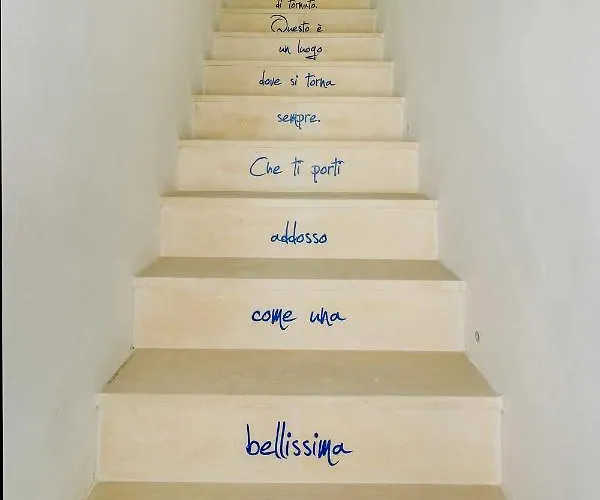 di tornato.
Questo è
un luogo
dove si torna
sempre.
Che ti porti
addosso
come una
bellissima